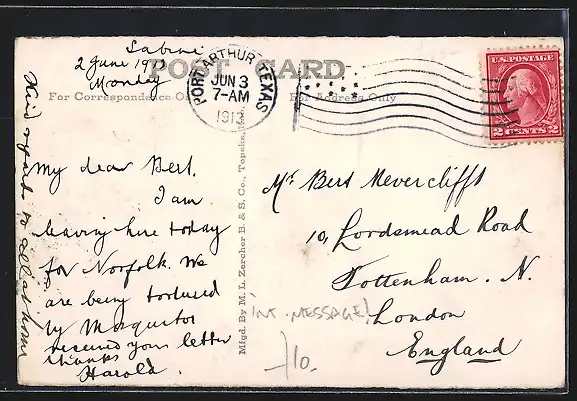 Sabine
2 June 1913
Monday
POST CARD
For Correspondence Only
For Address Only
PORT ARTHUR, TEXAS
JUN 3
7-AM
1913
U.S. POSTAGE
2 CENTS 2
My dear Bert.
I am
leaving here today
for Norfolk. We
are being tortured
by Mosquitos
received your letter
thanks
Harold.
Kind regards to all at home
Mfgd. By M. L. Zercher B. & S. Co., Topeka,
Mr Bert Mevercliffs
10, Lordsmead Road
Tottenham. N.
London
England
INT. MESSAGE!
10.